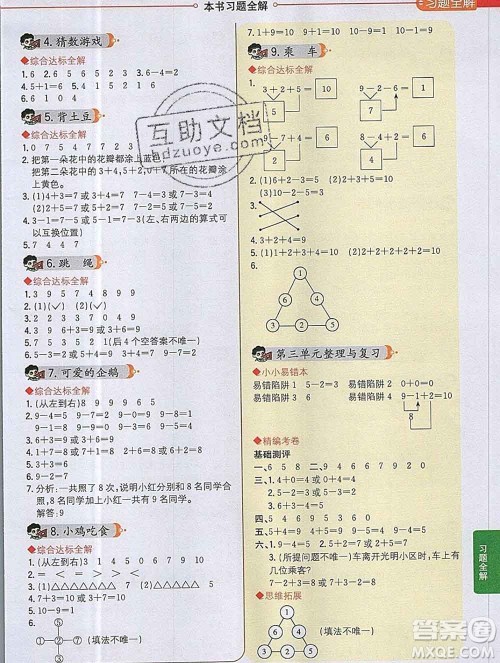 本书习题全解
习题全解
4. 猜数游戏
◆综合达标全解
1. 6 2. 6 5 6 5 2 3
4. 5+1=6 2+4=6 3+3=6
6. 6 1 0
5. 背土豆
◆综合达标全解
1. 0 7 5 4 5 2 3
2. 把第一朵花中的花瓣都涂上蓝色
把第二朵花中的3+4,5+2,0+7所在的花瓣涂
上黄色。
3. (1)3+4=7或4+3=7 7-4=3或7-3=4
(2)2+5=7或5+2=7 7-5=2或7-2=5
4. 3-1=7-5或3-1=5-3(左、右两边的算式可
以互换位置)
5. 7 4 4 7
6. 跳绳
◆综合达标全解
1. 3 9 5 7 4 8 9 9
2. (✓) (✓)
3. 6+3=9或3+6=9 9-3=6或9-6=3
4. 7 8 5 4 2 1(后4个空答案不唯一)
7. 可爱的企鹅
◆综合达标全解
1. (从左到右)9 6 4 8 7 9
2. 9-4=5 9-7=2 9-0=9 9-8=1
3. 9-1=8 9-2=7 8-2=6
4. 1+7=8或7+1=8 2+6=8或6+2=8
5. 4 4 2 3 1
6. 4 5 4 8 1 1
7. 分析:一共照了8次,说明小红分别和8名同学合
照,8名同学加上小红一共有9名同学。
解答:9
8. 小鸡吃食
◆综合达标全解
1. (从左到右)3 4 2 5 0 7
2. = < = < < =
3. △△△△△△△△△
4. 7+3=10或3+7=10 10-3=7或10-7=3
5. 9 1 7 5 10 4 4 4 5 5
6. ⑤
①—②—③ (填法不唯一)
④
7. 1+9=10 10-9=1 10-1=9
9. 乘车
◆综合达标全解
1. 3+2+5=10 9-2-6=1
5 7
8-7+4=5 9-4+2=7
1 5
2. (1)6+2-3=5 (2)2+3+4=9
(3)10-2-3=5
3.
4. 3+2+4=9
5. (1)2+2+2=6 (2)2+2+2+2+2=10
6. 1
6 5
2 4 3
第三单元整理与复习
◆小小易错本
易错陷阱1 5-2=3 易错陷阱2 0+0=0
易错陷阱3 8 7 4 易错陷阱4 9-1+2=10
8
◆精编考卷
基础测评
一、6 5 8 二、9 10 9 10 6 10
三、> = > < = <
四、(1)4+0=4 (2)3+3=6
五、5 4 5 9 9 2 5 7 10
六、1. 2+2+3=7
2. 9-3+4=10
3. (所提问题不唯一)车离开光明小区时,车上有
几位乘客?
7-2+3=8 3+1+2=6
◆思维拓展
1
(填法不唯一)
互助文档
hdzuoye.com
习题全解
作业答案
MXQE.COM